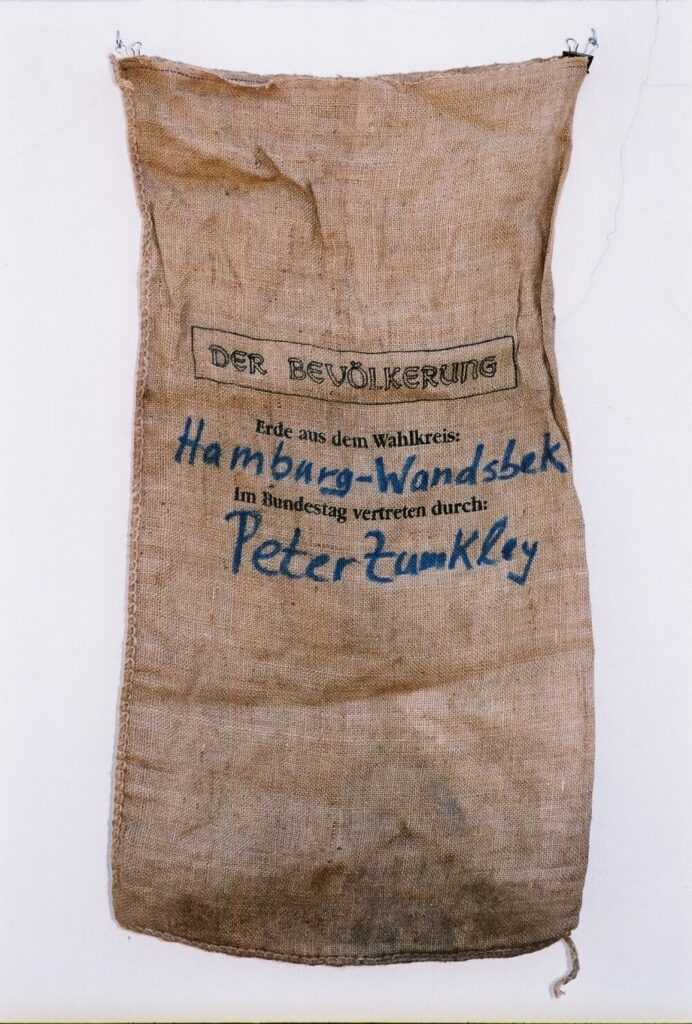 DER BEVÖLKERUNG
Erde aus dem Wahlkreis:
Hamburg-Wandsbek
Im Bundestag vertreten durch:
Peter Zumkley